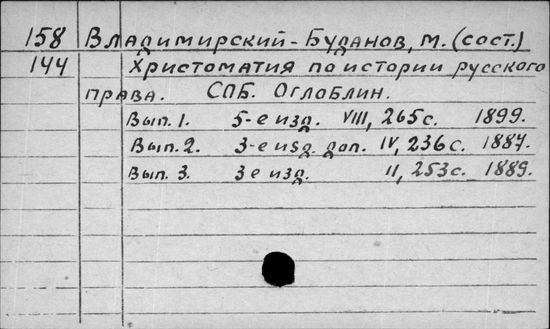 158 Владимирский-Буданов, М. (сост.)
144 Христоматия по истории русского
права. СПБ. Оглоблин.
Вып. 1. 5-е изд. VIII, 265 с. 1899.
Вып. 2. 3-е изд. доп. IV, 236 с. 1887.
Вып. 3. 3 е изд. II, 253 с. 1889.